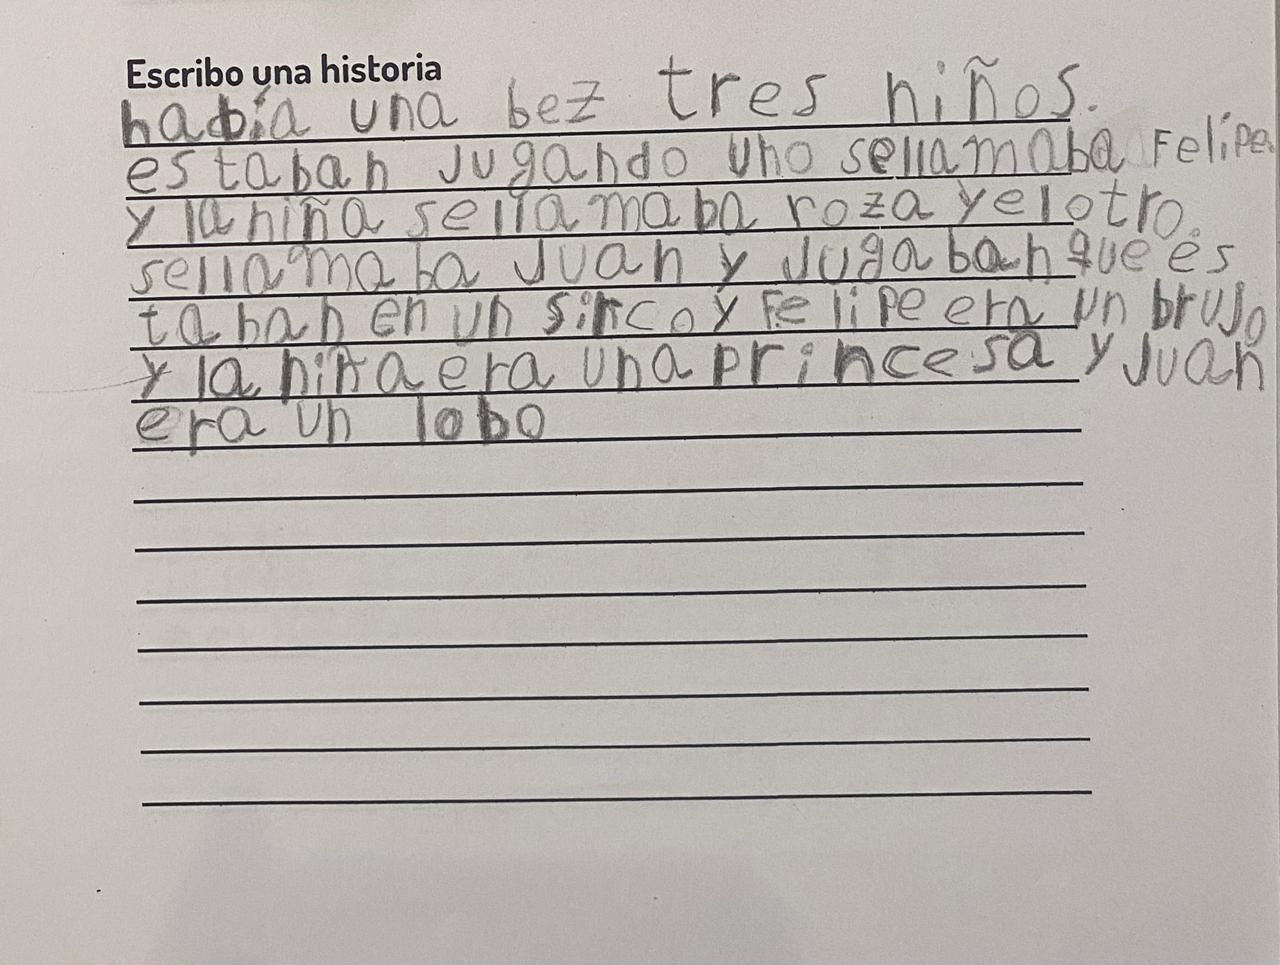 Escribo una historia
había una bez tres niños.
estaban Jugando uno sellamaba Felipe.
y la niña sellamaba roza yelotro.
sellamaba Juan y Jugaban que es
taban en un sirco y Felipe era un brujo
y la niña era una princesa y Juan
era un lobo